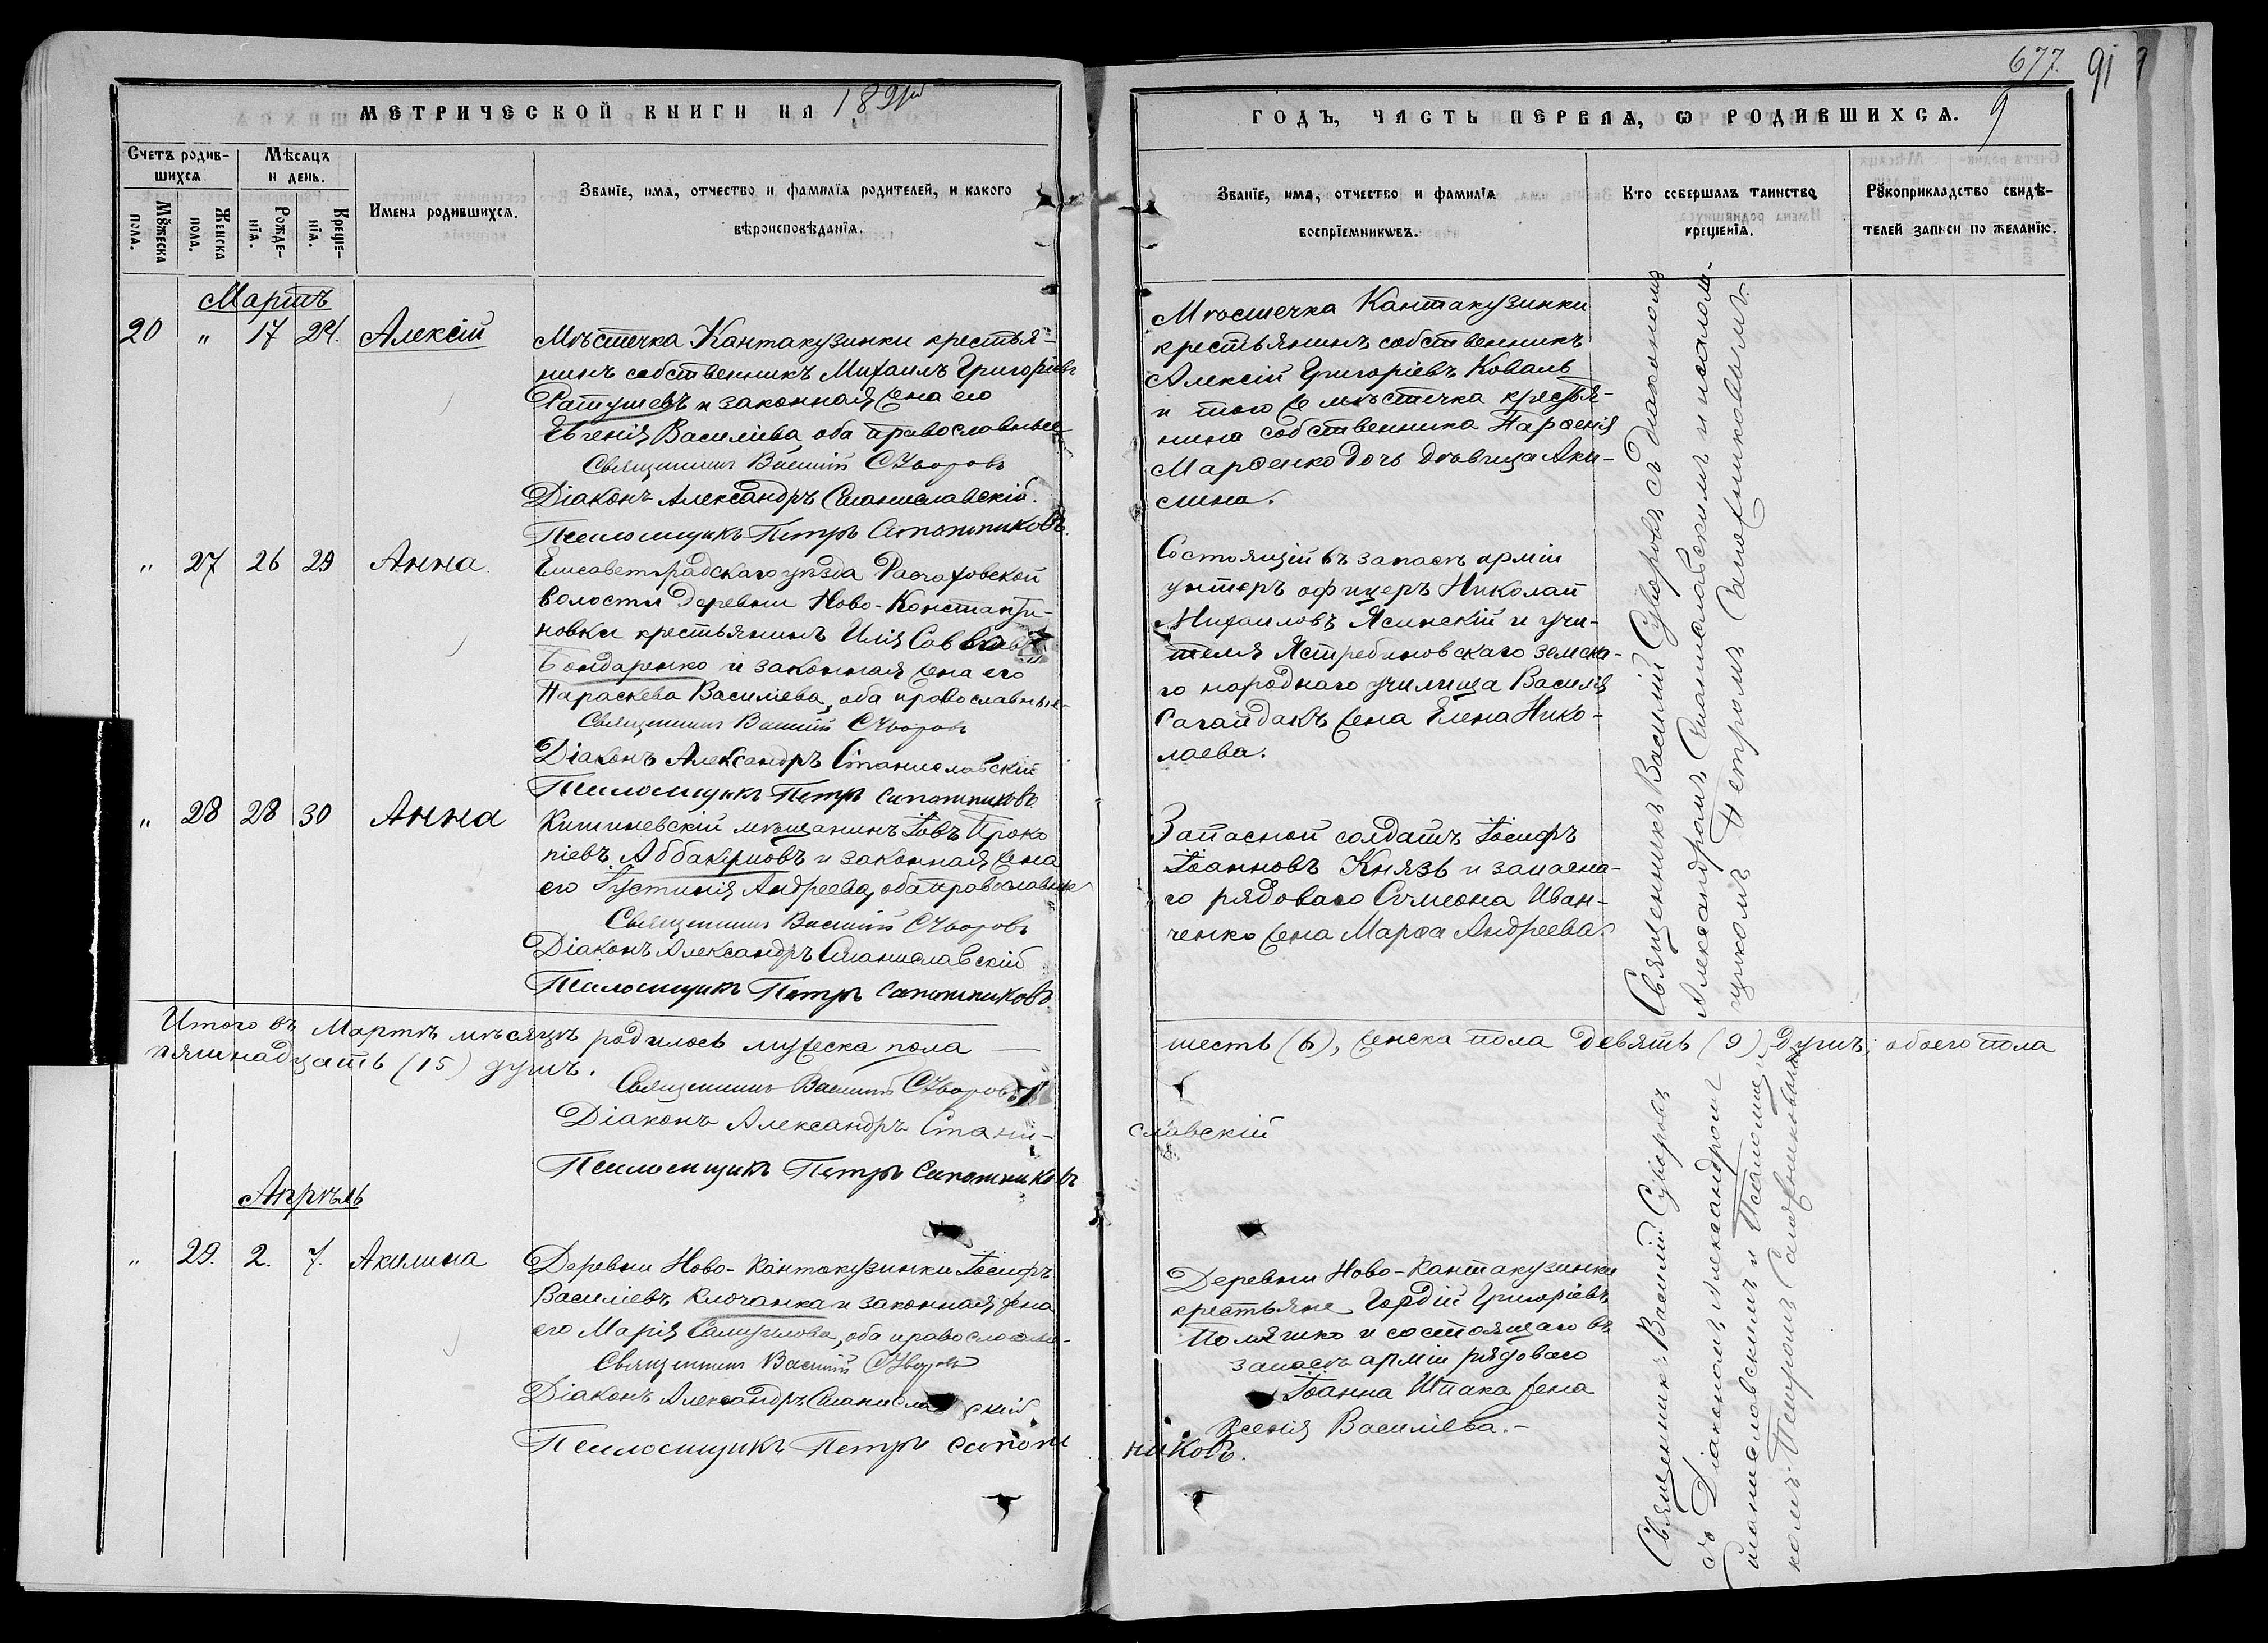 677.
91
9
МЕТРИЧЕСКОЙ КНИГИ НА 189
ГОДЪ, ЧАСТЬ ПЕРВАЯ, Ѡ РОДИВШИХСЯ.
Счетъ родив-
шихся
Мѣсяцъ
и день.
Мꙋжеска
пола.
Женска
пола.
Рожде-
нїя.
Креще-
нїя.
Имена родившихся.
Званїе, имя, отчество и фамилїя родителей, и какого
вѣроисповѣданїя.
Званїе, имя, отчество и фамилїя
воспрїемникѡвъ.
Кто совершалъ таинство
крещенїя.
Рꙋкоприкладство свидѣ-
телей записи по желанїю.
Мартъ
20 " 17 24. Алексій
Мѣстечка Кантакузинки крестья-
нинъ собственникъ Михаилъ Григоріевъ
Ратушевъ и законная жена его
Евгенія Василіева, оба православные
Священникъ Василій Суворовъ
Діаконъ Александръ Станиславскій.
Псаломщикъ Петръ Сапожниковъ.
Мѣстечка Кантакузинки
крестьянинъ собственникъ
Алексій Григоріевъ Коваль
и того же мѣстечка крестья-
нина собственника Парѳенія
Марѳенко дочь дѣвица Аки-
лина.
" 27 26 29 Анна.
Елисаветградскаго уѣзда
волости деревни Ново-Константи-
новки крестьянинъ Илія Саввовъ
Бондаренко и законная жена его
Параскева Василіева, оба православные
Священникъ Василій Суворовъ
Діаконъ Александръ Станиславскій
Псаломщикъ Петръ Сапожниковъ
Состоящій въ запасѣ арміи
унтеръ офицеръ Николай
Михаиловъ Ясинскій и учи-
теля Ястребиновскаго земска-
го народнаго училища Василія
Сагайдакъ жена Елена Нико-
лаева.
" 28 28 30 Анна
Кишиневскій мѣщанинъ Іовъ Проко
піевъ Аббакумовъ и законная жена
его Іустинія Андреева, оба православные
Священникъ Василій Суворовъ
Діаконъ Александръ Станиславскій
Псаломщикъ Петръ Сапожниковъ
Запасной солдатъ Іосифъ
Іоанновъ Князь и запасна-
го рядоваго Симеона Иван-
ченко жена Марѳа Андреева.
Священникъ Василій Суворовъ съ діакономъ
Александромъ Станиславскимъ и псалом-
щикомъ Петромъ Сапожниковымъ.
Итого въ Мартѣ мѣсяцѣ родилось мужеска пола —
шесть (6), женска пола девять (9) душъ, обоего пола
пятнадцать (15) душъ.
Священникъ Василій Суворовъ
Діаконъ Александръ Стани-
славскій
Псаломщикъ Петръ Сапожниковъ
Апрѣль
" 29. 2. 7. Акилина
Деревни Ново-Кантакузинки Іосифъ
Василіевъ Клочанка и законная жена
его Марія Самуилова, оба православные-
Священникъ Василій Суворовъ
Діаконъ Александръ Станиславскій
Псаломщикъ Петръ Сапож
никовъ.
Деревни Ново-Кантакузинки
крестьяне Гордій Григоріевъ
и состоящаго въ
запасѣ арміи рядоваго
Іоанна Шпака жена
Ксенія Василіева.-
Священникъ Василій Суворовъ
съ Діакономъ Александромъ
Станиславскимъ и Псаломщи-
комъ Петромъ Сапожниковымъ